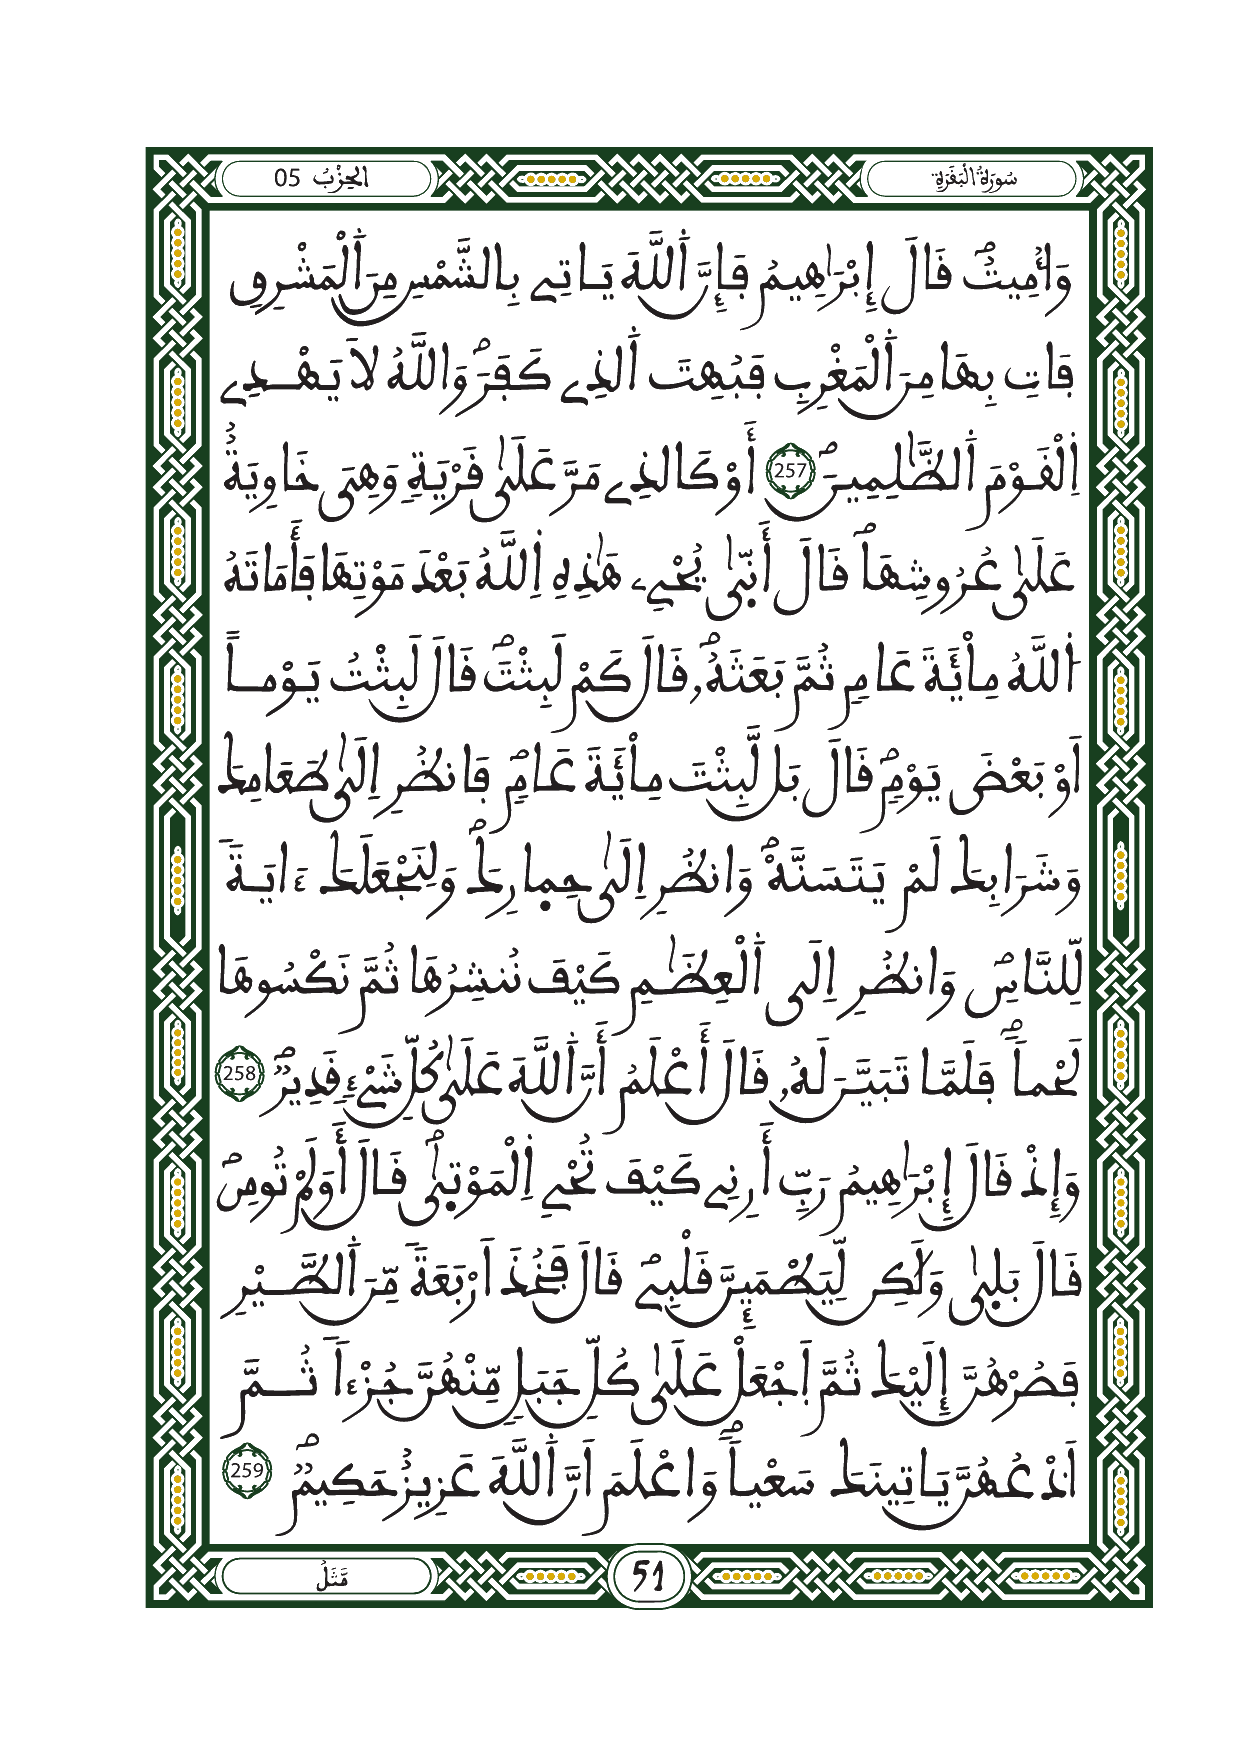 سُورَةُ الْبَقَرَةِ
الحِزْبُ 05
وَأُمِيتُ قَالَ إِبْرَٰهِيمُ فَإِنَّ اَ۬للَّهَ يَاتِے بِالشَّمْسِ مِنَ اَ۬لْمَشْرِقِ
فَاتِ بِهَا مِنَ اَ۬لْمَغْرِبِ فَبُهِتَ اَ۬لذِے كَفَرَ وَاللَّهُ لَا يَهْدِے
اِ۬لْقَوْمَ اَ۬لظَّٰلِمِينَ 257 أَوْ كَالذِے مَرَّ عَلَىٰ قَرْيَةٍ وَهِىَ خَاوِيَةٌ
عَلَىٰ عُرُوشِهَا قَالَ أَنّ۪ىٰ يُحْيِے هَٰذِهِ اِ۬للَّهُ بَعْدَ مَوْتِهَا فَأَمَاتَهُ
اُ۬للَّهُ مِاْئَةَ عَامٍ ثُمَّ بَعَثَهُۥ قَالَ كَمْ لَبِثْتَ قَالَ لَبِثْتُ يَوْماً
اَوْ بَعْضَ يَوْمٍ قَالَ بَل لَّبِثْتَ مِاْئَةَ عَامٍ فَانظُرِ اِلَىٰ طَعَامِكَ
وَشَرَابِكَ لَمْ يَتَسَنَّهْ وَانظُرِ اِلَىٰ حِم۪ارِكَ وَلِنَجْعَلَكَ ءَايَةً
لِّلنَّاسِ وَانظُرِ اِلَى اَ۬لْعِظَٰمِ كَيْفَ نُنشِرُهَا ثُمَّ نَكْسُوهَا
لَحْماً فَلَمَّا تَبَيَّنَ لَهُۥ قَالَ أَعْلَمُ أَنَّ اَ۬للَّهَ عَلَىٰ كُلِّ شَےْءٍ قَدِيرٌ 258
وَإِذْ قَالَ إِبْرَٰهِيمُ رَبِّ أَرِنِے كَيْفَ تُحْيِ اِ۬لْمَوْت۪ىٰ قَالَ أَوَلَمْ تُومِن
قَالَ بَل۪ىٰ وَلَٰكِن لِّيَطْمَئِنَّ قَلْبِے قَالَ فَخُذَ اَرْبَعَةً مِّنَ اَ۬لطَّيْرِ
فَصُرْهُنَّ إِلَيْكَ ثُمَّ اَ۪جْعَلْ عَلَىٰ كُلِّ جَبَلٍ مِّنْهُنَّ جُزْءاً ثُمَّ
اَ۟دْعُهُنَّ يَاتِينَكَ سَعْياً وَاعْلَمَ اَنَّ اَ۬للَّهَ عَزِيزٌ حَكِيمٌ 259
مَّثَلُ
51